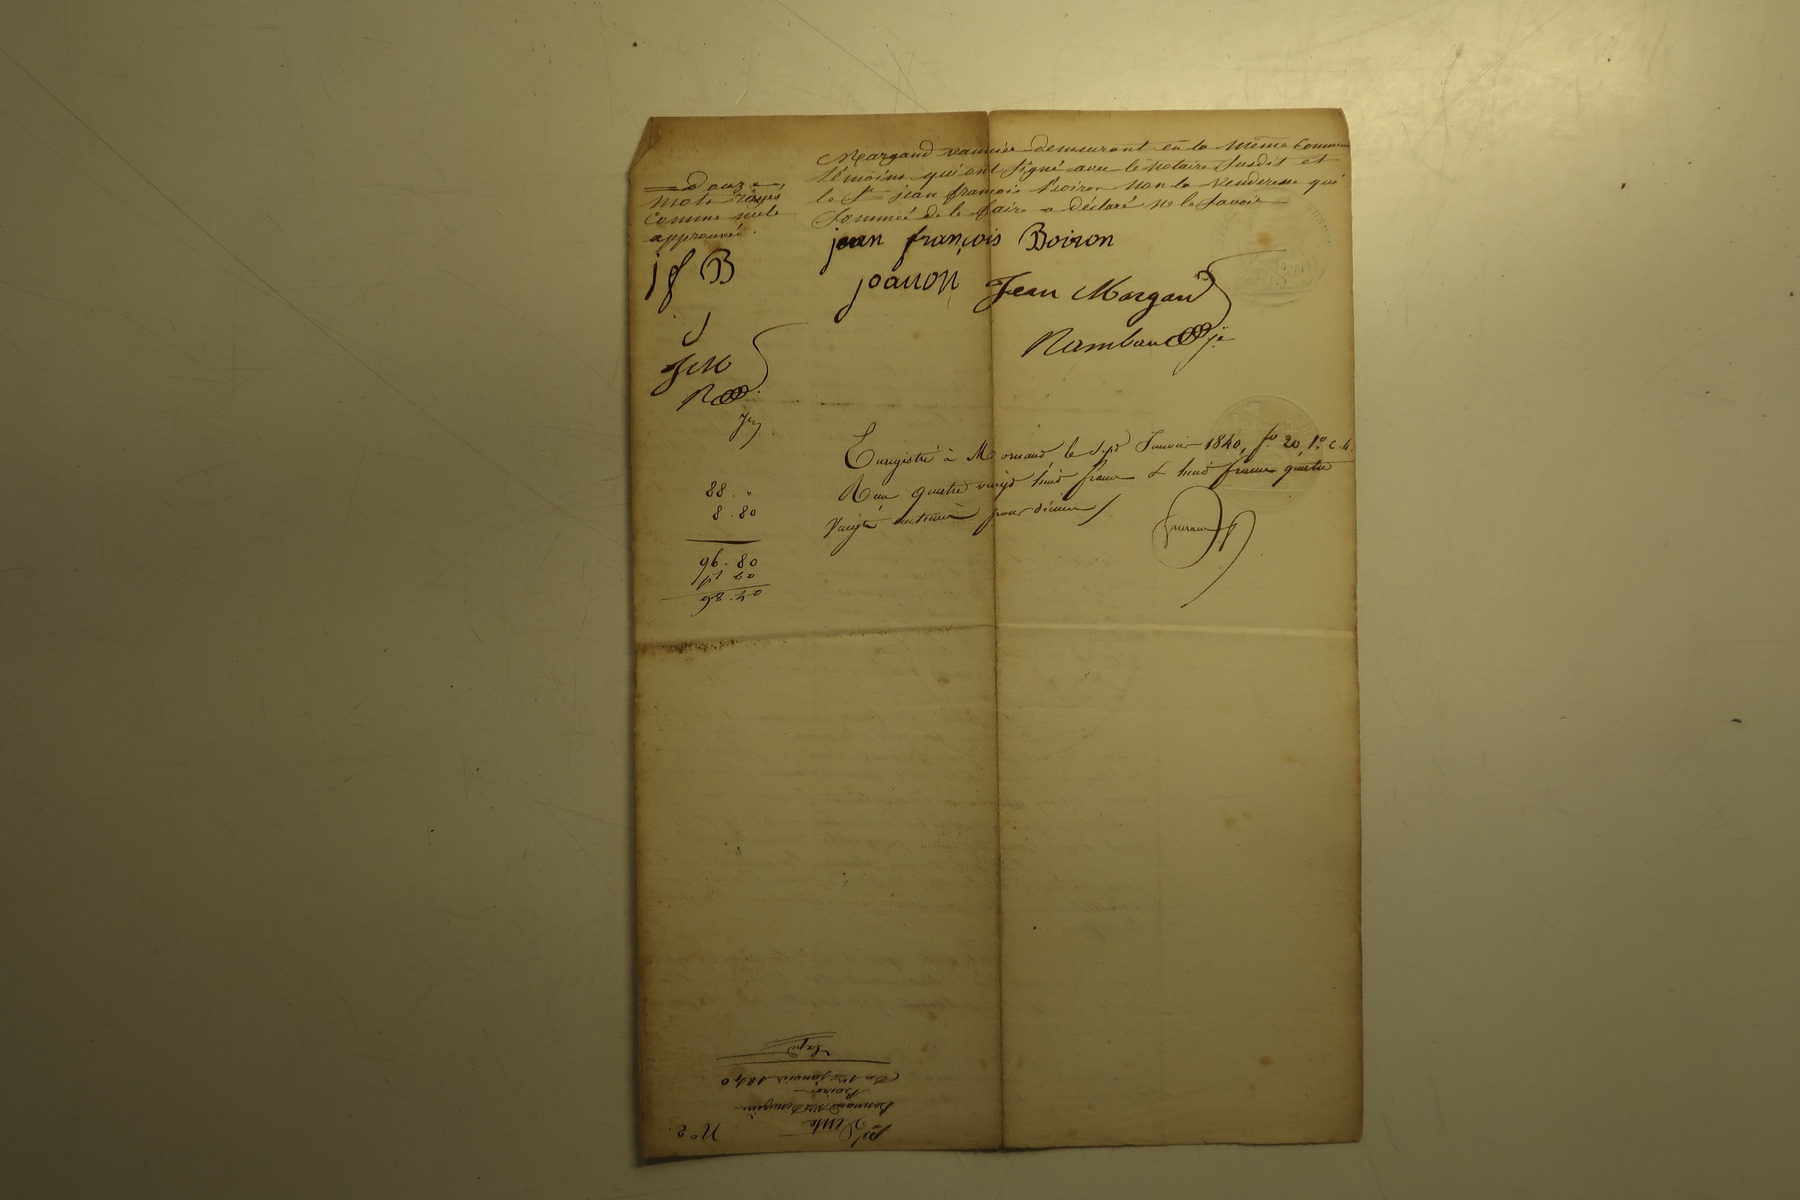 Margand vannier demeurant en la même Commune
témoins qui ont signé avec le Notaire susdit et
le Sr jean françois Boiron non la venderesse qui
sommée de le faire a déclaré ne le savoir
Douze
mots rayés
comme nuls
approuvés.
jean françois Boiron
joanon Jean Margand
Rambaud
jf B
J
JM
R
Enregistré à Mornand le sept Janvier 1840, fo 20, Ro c. 4.
Reçu quatre vingt huit francs & huit francs quatre
vingts centimes pour décime
88. "
8. 80
96. 80
98. 40
No 2.
Vente
Boiron
Du 1er janvier 1840
Expd